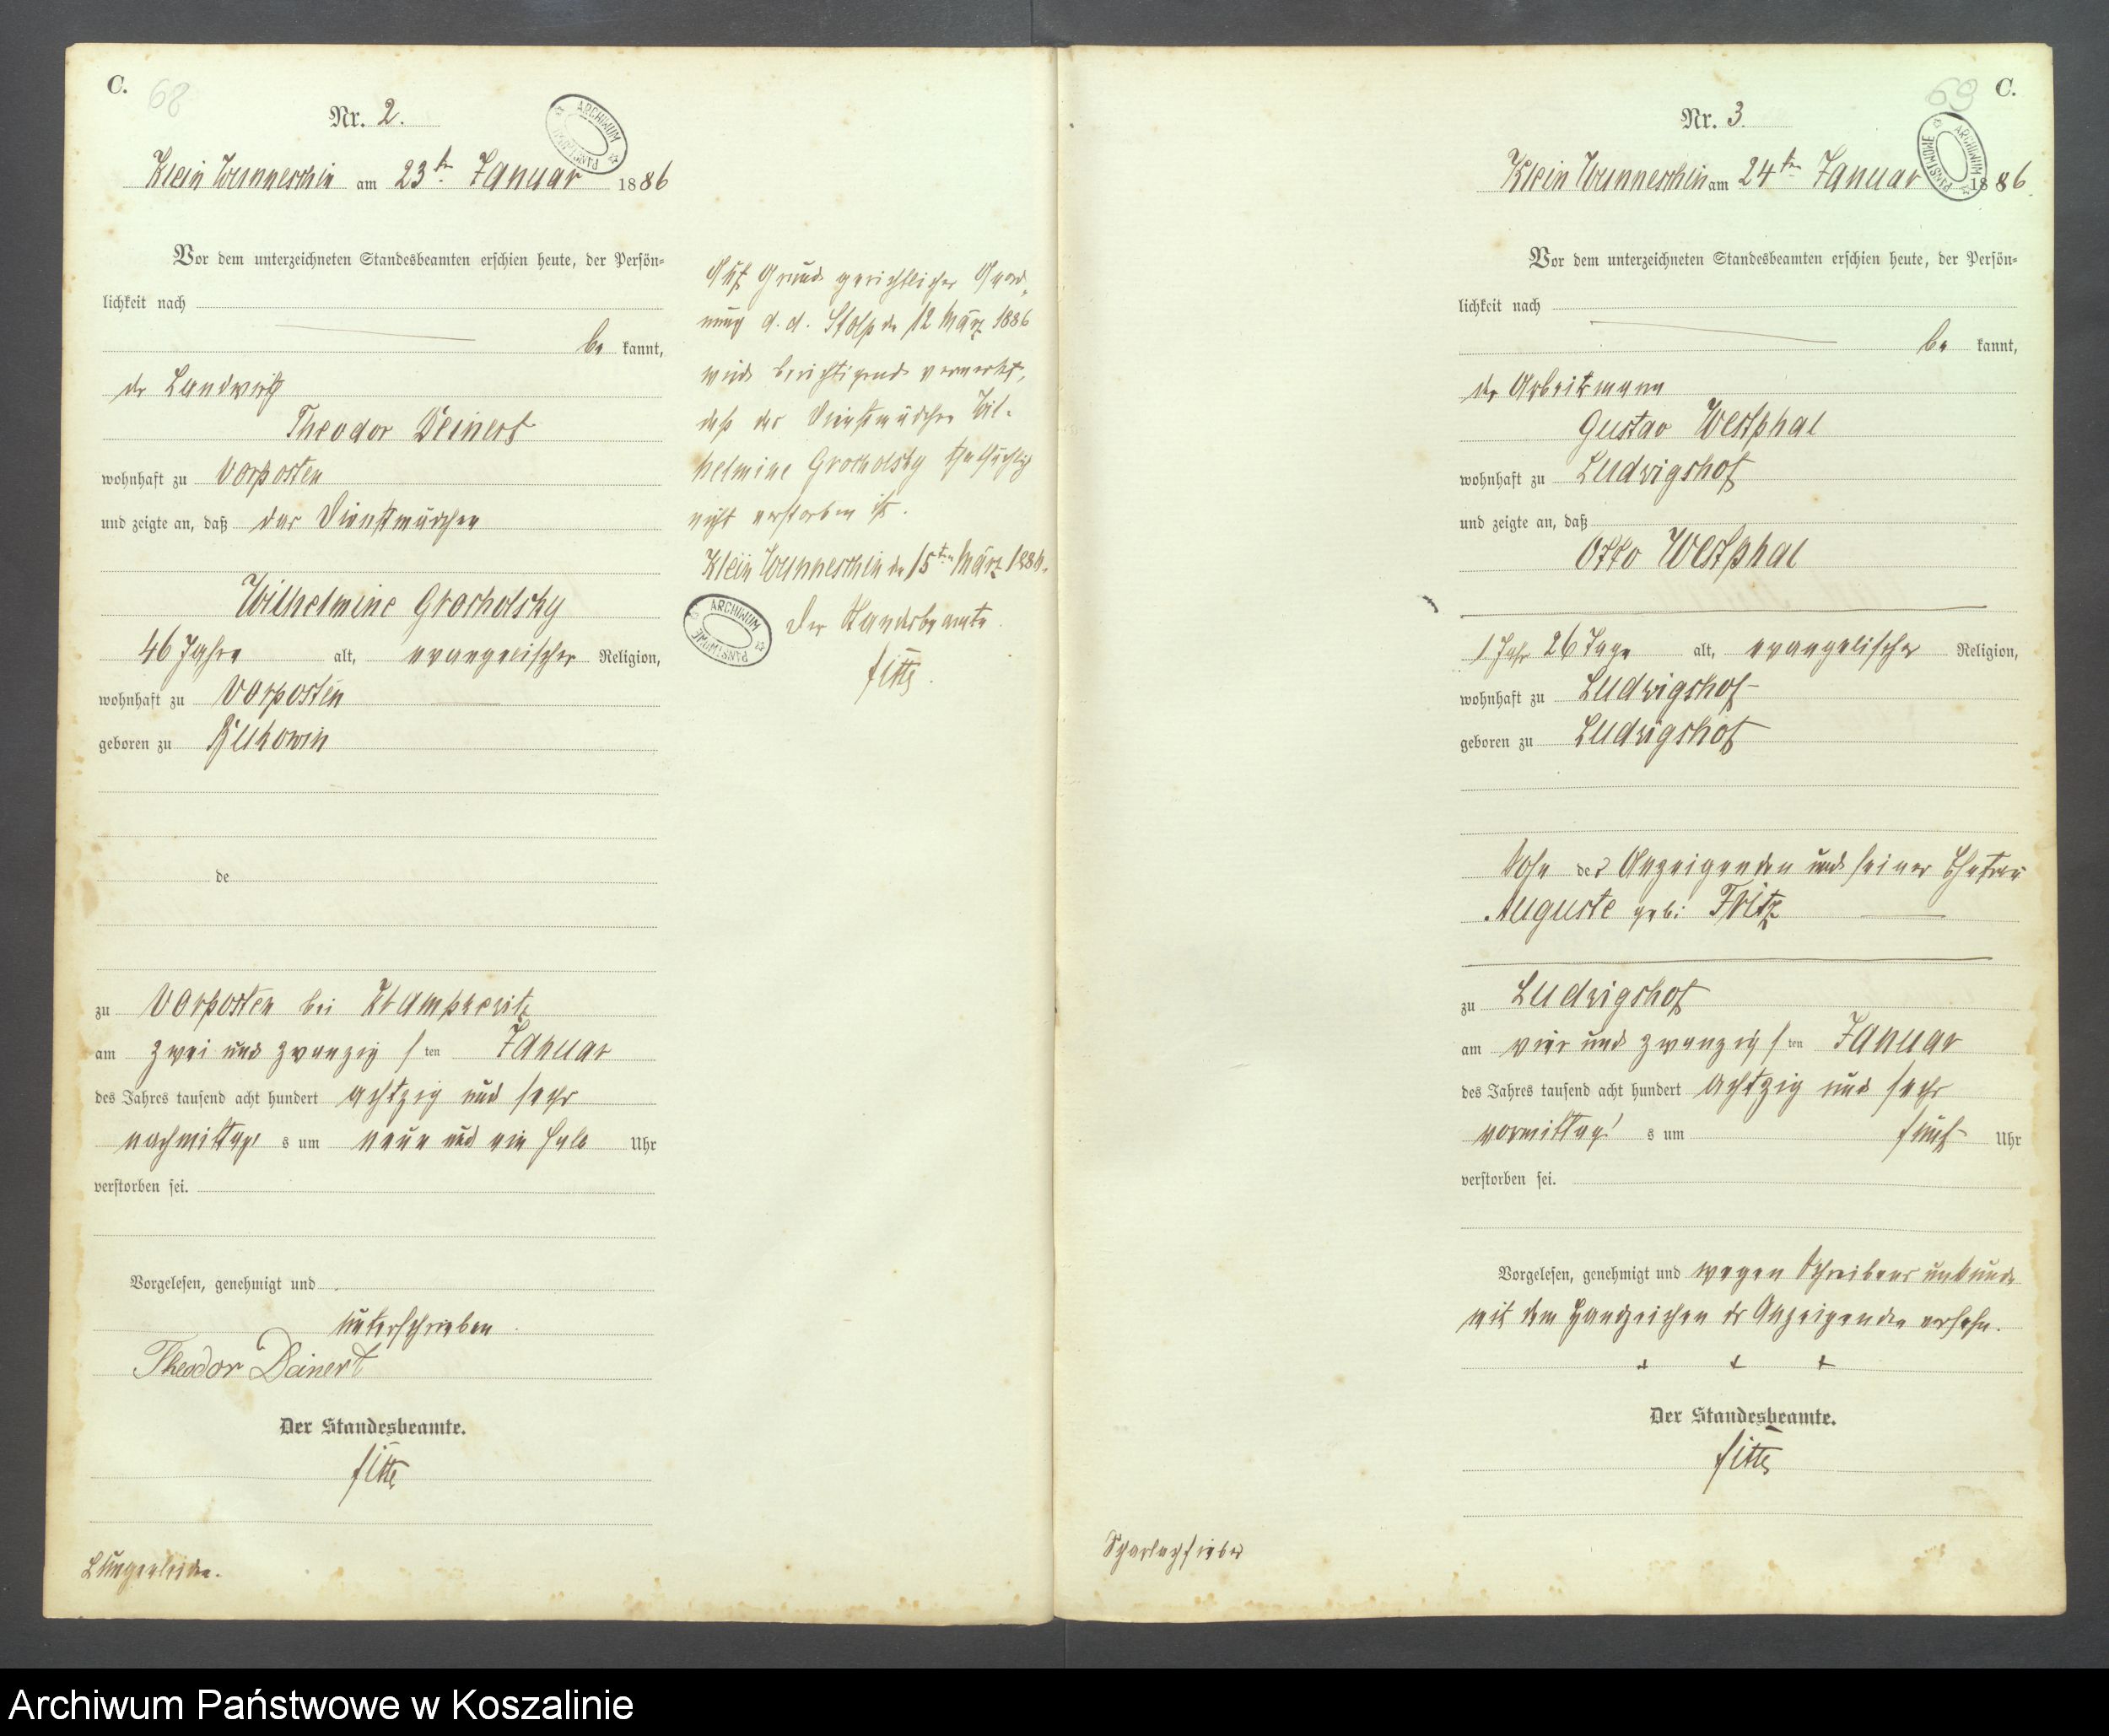 C.
68
Nr. 2.
ARCHIWUM PAŃSTWOWE
Klein Wunneschin am 23ten Januar 1886
Vor dem unterzeichneten Standesbeamten erschien heute, der Persön-
lichkeit nach
be kannt,
der Landwirth
Theodor Deinert
wohnhaft zu Vorposten
und zeigte an, daß das Dienstmädchen
Wilhelmine Grocholsky
46 Jahre alt, evangelischer Religion,
wohnhaft zu Vorposten
geboren zu Bukowin
de
zu Vorposten bei
am zwei und zwanzig sten Januar
des Jahres tausend acht hundert achtzig und sechs
nachmittags um neun und ein halb Uhr
verstorben sei.
Vorgelesen, genehmigt und
unterschrieben.
Theodor Deinert
Der Standesbeamte.
Lungenleiden.
Auf Grund gerichtlicher Anord-
nung d. d. Stolp den 12 März 1886
wird berichtigend vermerkt,
daß das Dienstmädchen Wil-
helmine Grocholsky thatsächlich
nicht verstorben ist.
Klein Wunneschin den 15ten März 1886.
ARCHIWUM PAŃSTWOWE
Der Standesbeamte.
C.
69
Nr. 3.
ARCHIWUM PAŃSTWOWE
Klein Wunneschin am 24ten Januar 1886.
Vor dem unterzeichneten Standesbeamten erschien heute, der Persön-
lichkeit nach
be kannt,
der Arbeitsmann
Gustav Westphal
wohnhaft zu Ludwigshof
und zeigte an, daß
Otto Westphal
1 Jahr 26 Tage alt, evangelischer Religion,
wohnhaft zu Ludwigshof
geboren zu Ludwigshof
Sohn des Anzeigenden und seiner Ehefrau
Auguste geb: Fritz
zu Ludwigshof
am vier und zwanzig sten Januar
des Jahres tausend acht hundert achtzig und sechs
vormittags um fünf Uhr
verstorben sei.
Vorgelesen, genehmigt und wegen Schreibens unkunde
mit dem Handzeichen des Anzeigenden versehn.
+ + +
Der Standesbeamte.
Scharlachfieber
Archiwum Państwowe w Koszalinie